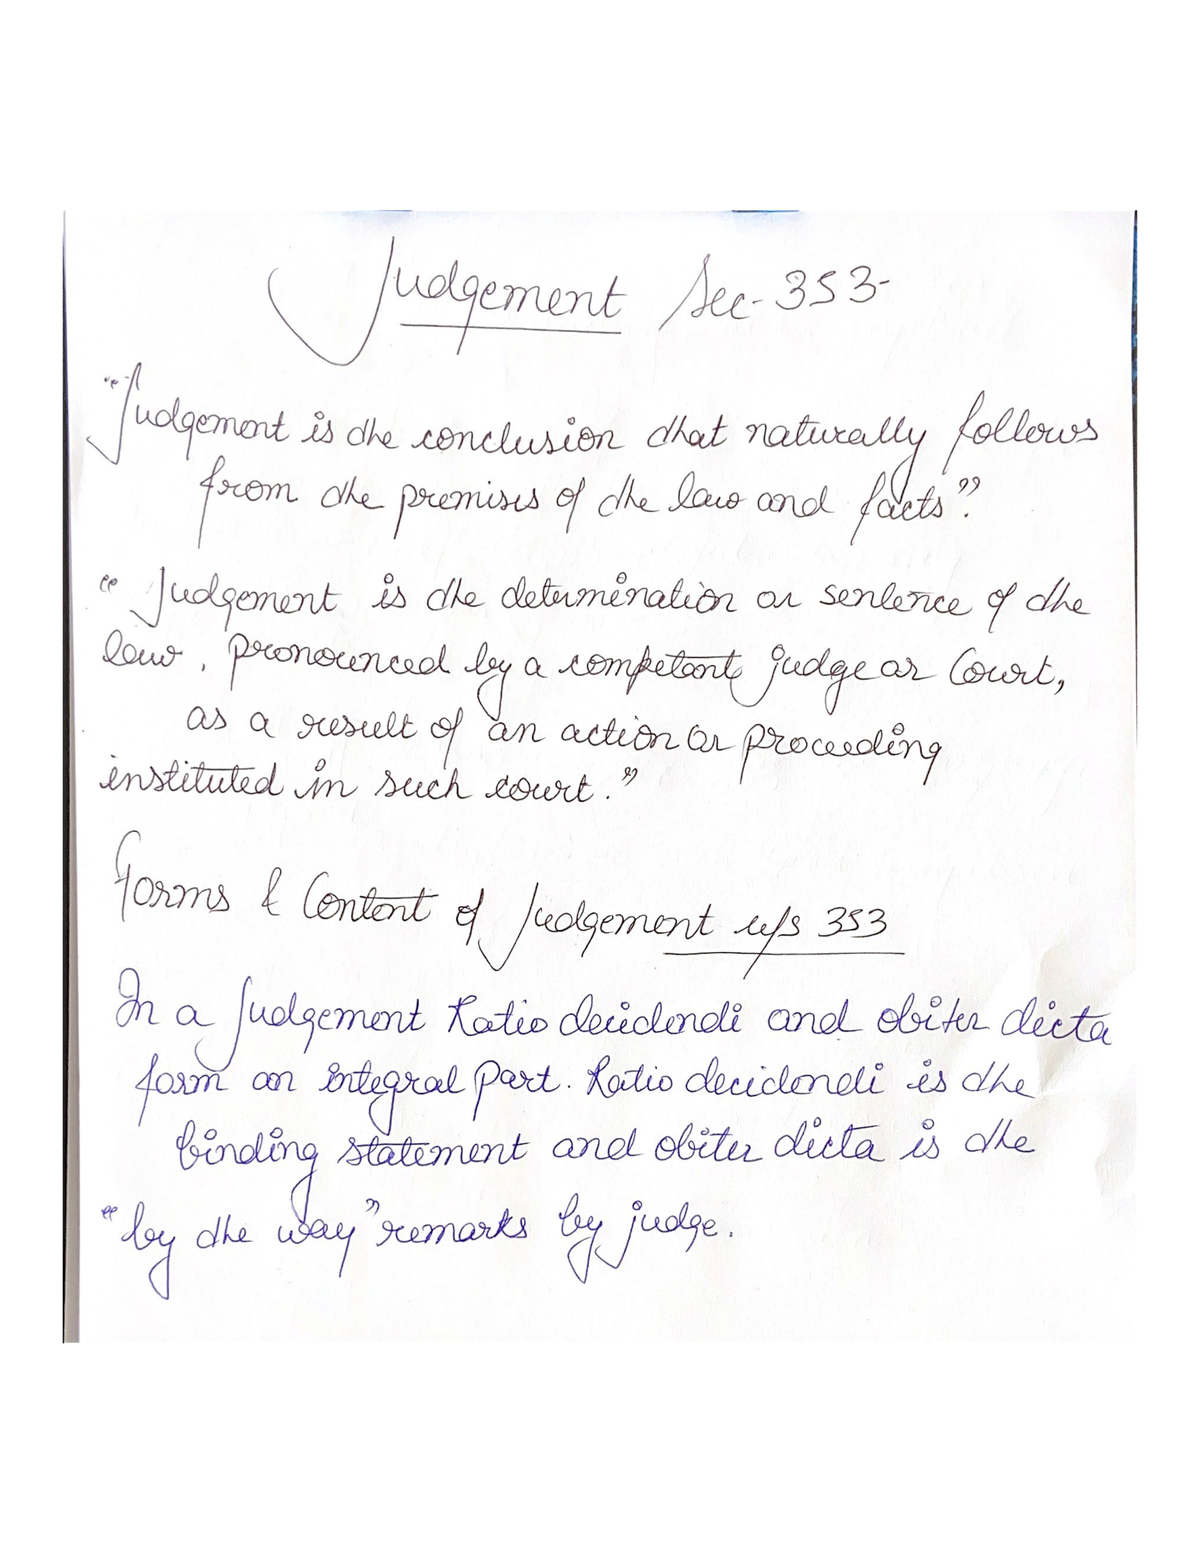 Judgement Sec-353-
"Judgement is the conclusion that naturally follows
from the premises of the law and facts".
"Judgement is the determination or sentence of the
law, pronounced by a competant judge or Court,
as a result of an action or proceeding
instituted in such court."
Forms & Content of Judgement u/s 353
In a Judgement Ratio decidendi and obiter dicta
form an integral part. Ratio decidendi is the
binding statement and obiter dicta is the
"by the way" remarks by judge.